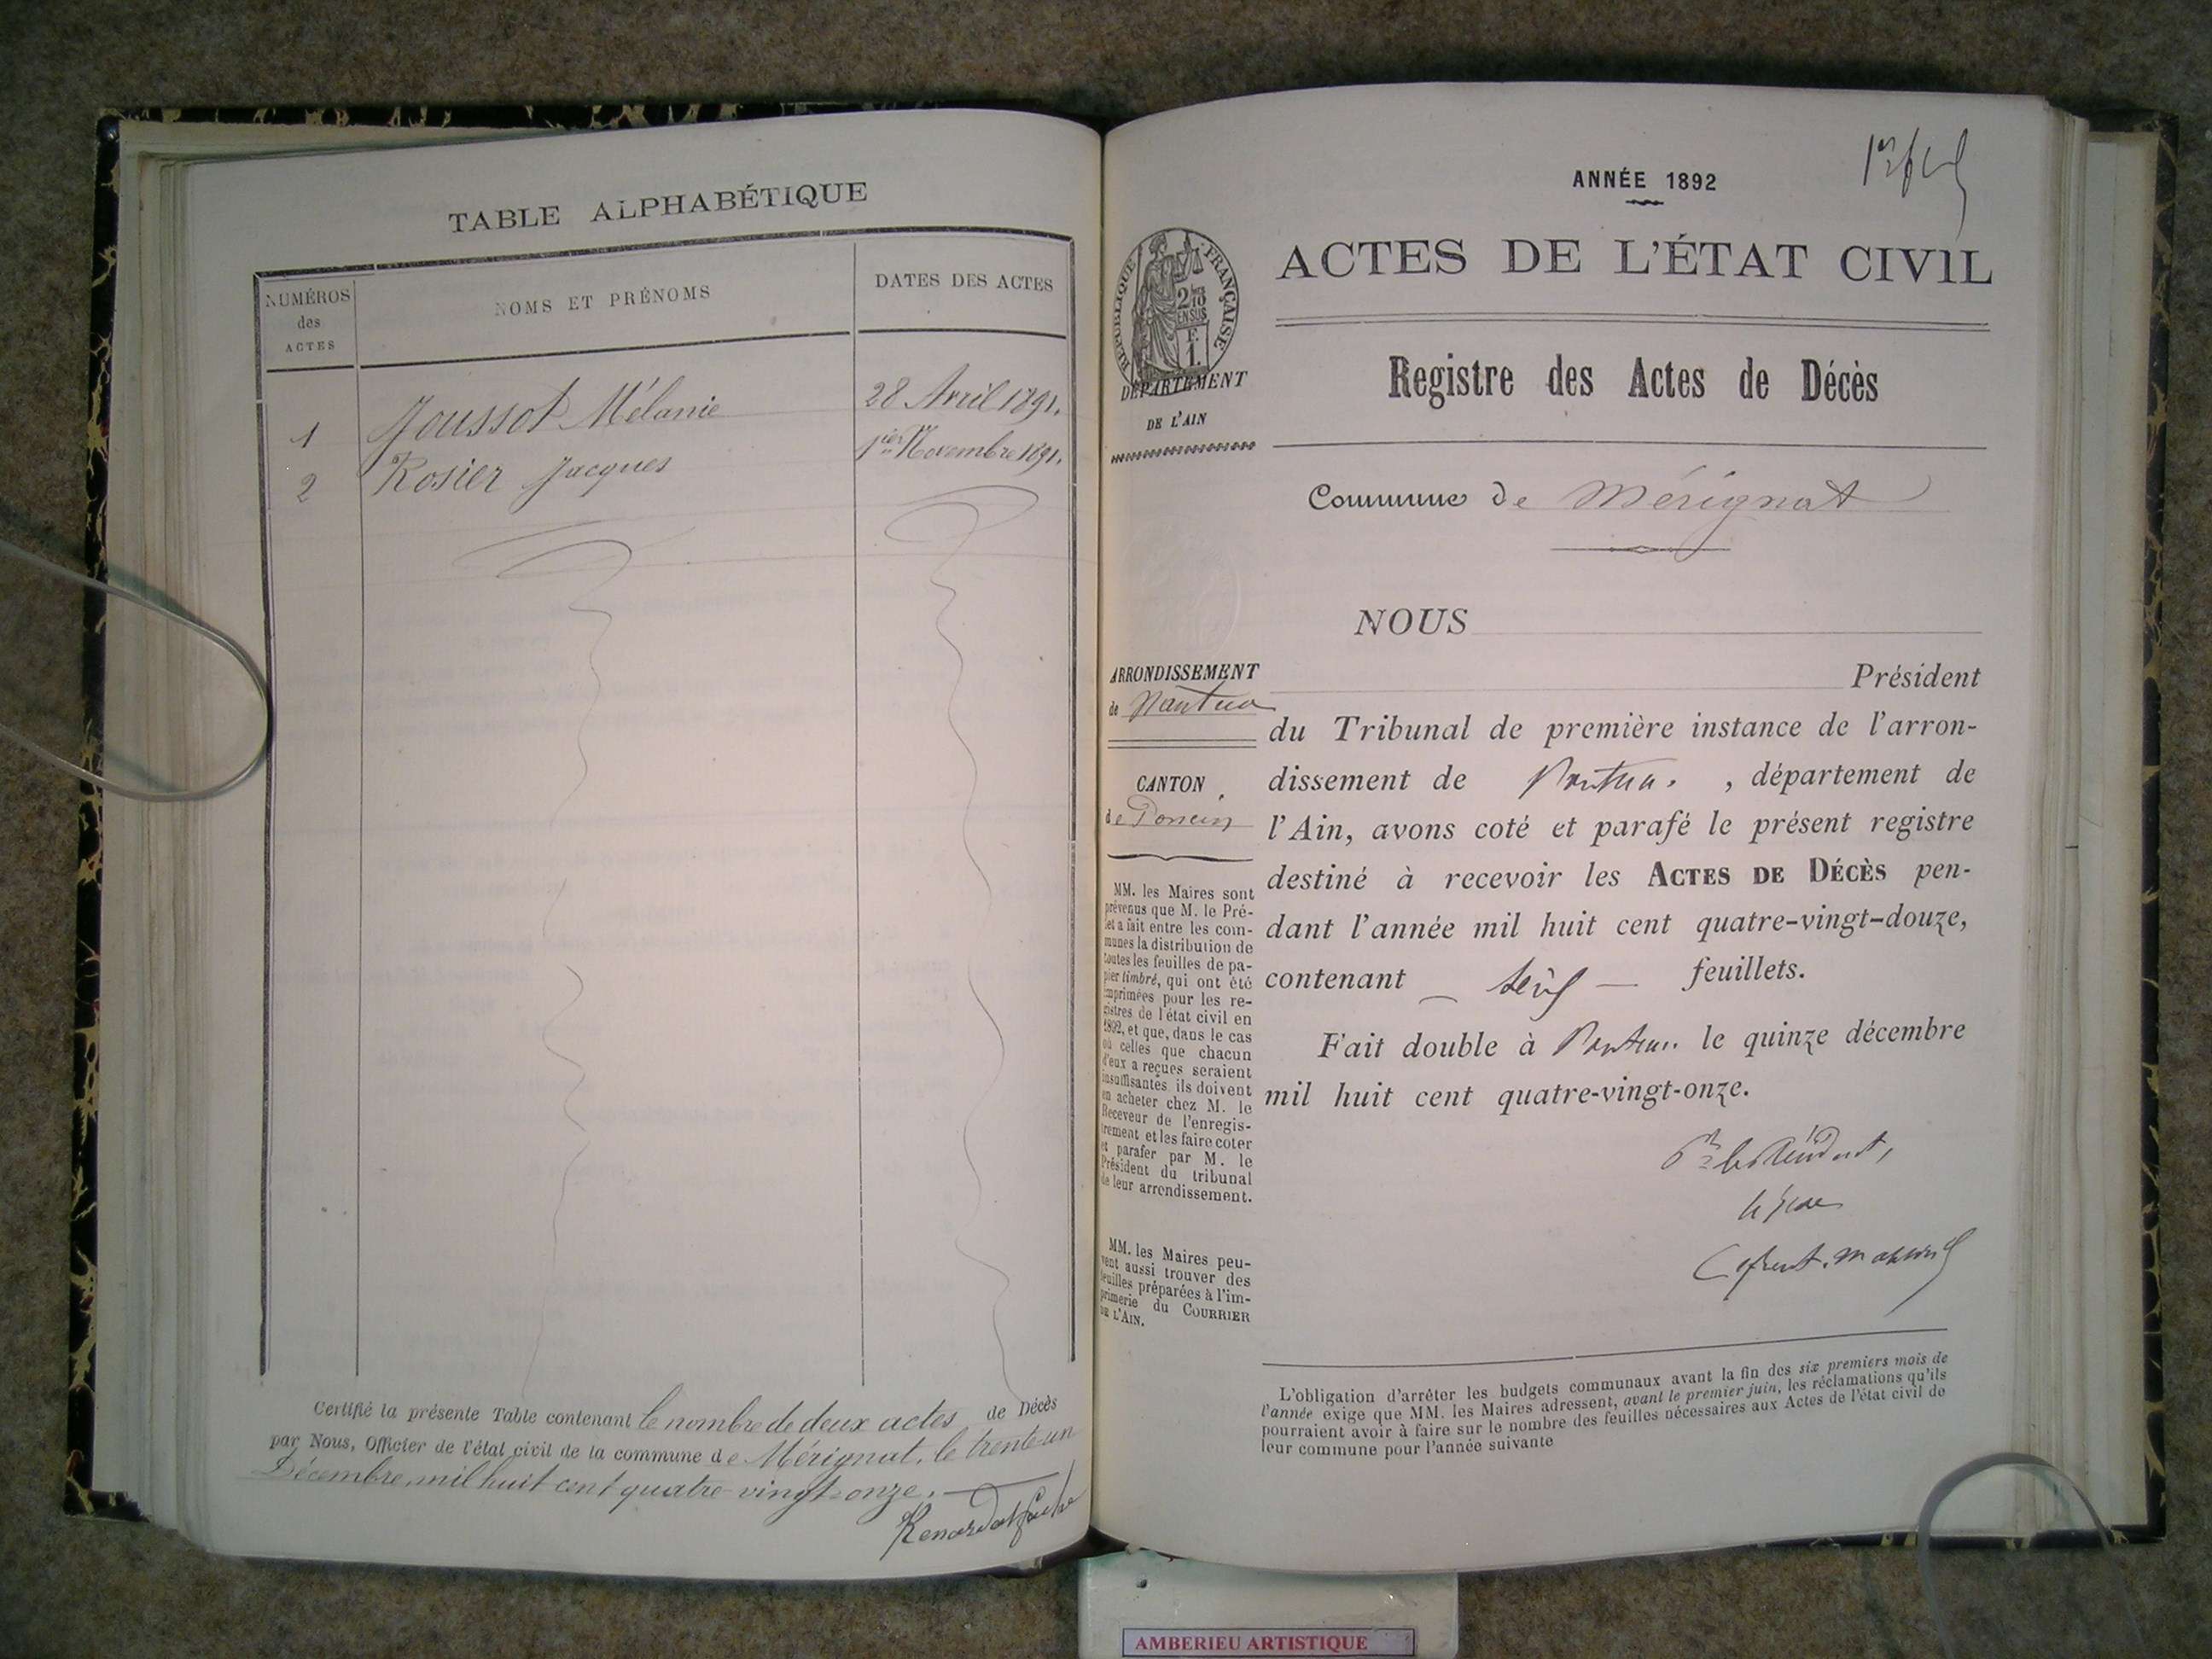 TABLE ALPHABÉTIQUE
NUMÉROS
des
ACTES
NOMS ET PRÉNOMS
DATES DES ACTES
1 Joussot Mélanie 28 Avril 1891.
2 Rosier Jacques 1ier Novembre 1891.
Certifié la présente Table contenant le nombre de deux actes de Décès
par Nous, Officier de l'état civil de la commune de Mérignat, le trente-un
Décembre, mil huit cent quatre-vingt-onze.
ANNÉE 1892
ACTES DE L'ÉTAT CIVIL
RÉPUBLIQUE FRANÇAISE
2/10
EN SUS
F.
1.
DÉPARTEMENT
DE L'AIN
Registre des Actes de Décès
Commune de Mérignat
NOUS
Président
ARRONDISSEMENT
de Nantua
du Tribunal de première instance de l'arron-
dissement de Nantua, département de
l'Ain, avons coté et parafé le présent registre
destiné à recevoir les ACTES DE DÉCÈS pen-
dant l'année mil huit cent quatre-vingt-douze,
contenant feuillets.
Fait double à Nantua le quinze décembre
mil huit cent quatre-vingt-onze.
CANTON
de Poncin
MM. les Maires sont
prévenus que M. le Pré-
fet a fait entre les com-
munes la distribution de
toutes les feuilles de pa-
pier timbré, qui ont été
imprimées pour les re-
gistres de l'état civil en
1892, et que, dans le cas
où celles que chacun
d'eux a reçues seraient
insuffisantes ils doivent
en acheter chez M. le
Receveur de l'enregis-
trement et les faire coter
et parafer par M. le
Président du tribunal
de leur arrondissement.
MM. les Maires peu-
vent aussi trouver des
feuilles préparées à l'im-
primerie du COURRIER
DE L'AIN.
Pr le Président,
le Juge
L'obligation d'arrêter les budgets communaux avant la fin des six premiers mois de
l'année exige que MM. les Maires adressent, avant le premier juin, les réclamations qu'ils
pourraient avoir à faire sur le nombre des feuilles nécessaires aux Actes de l'état civil de
leur commune pour l'année suivante
AMBERIEU ARTISTIQUE